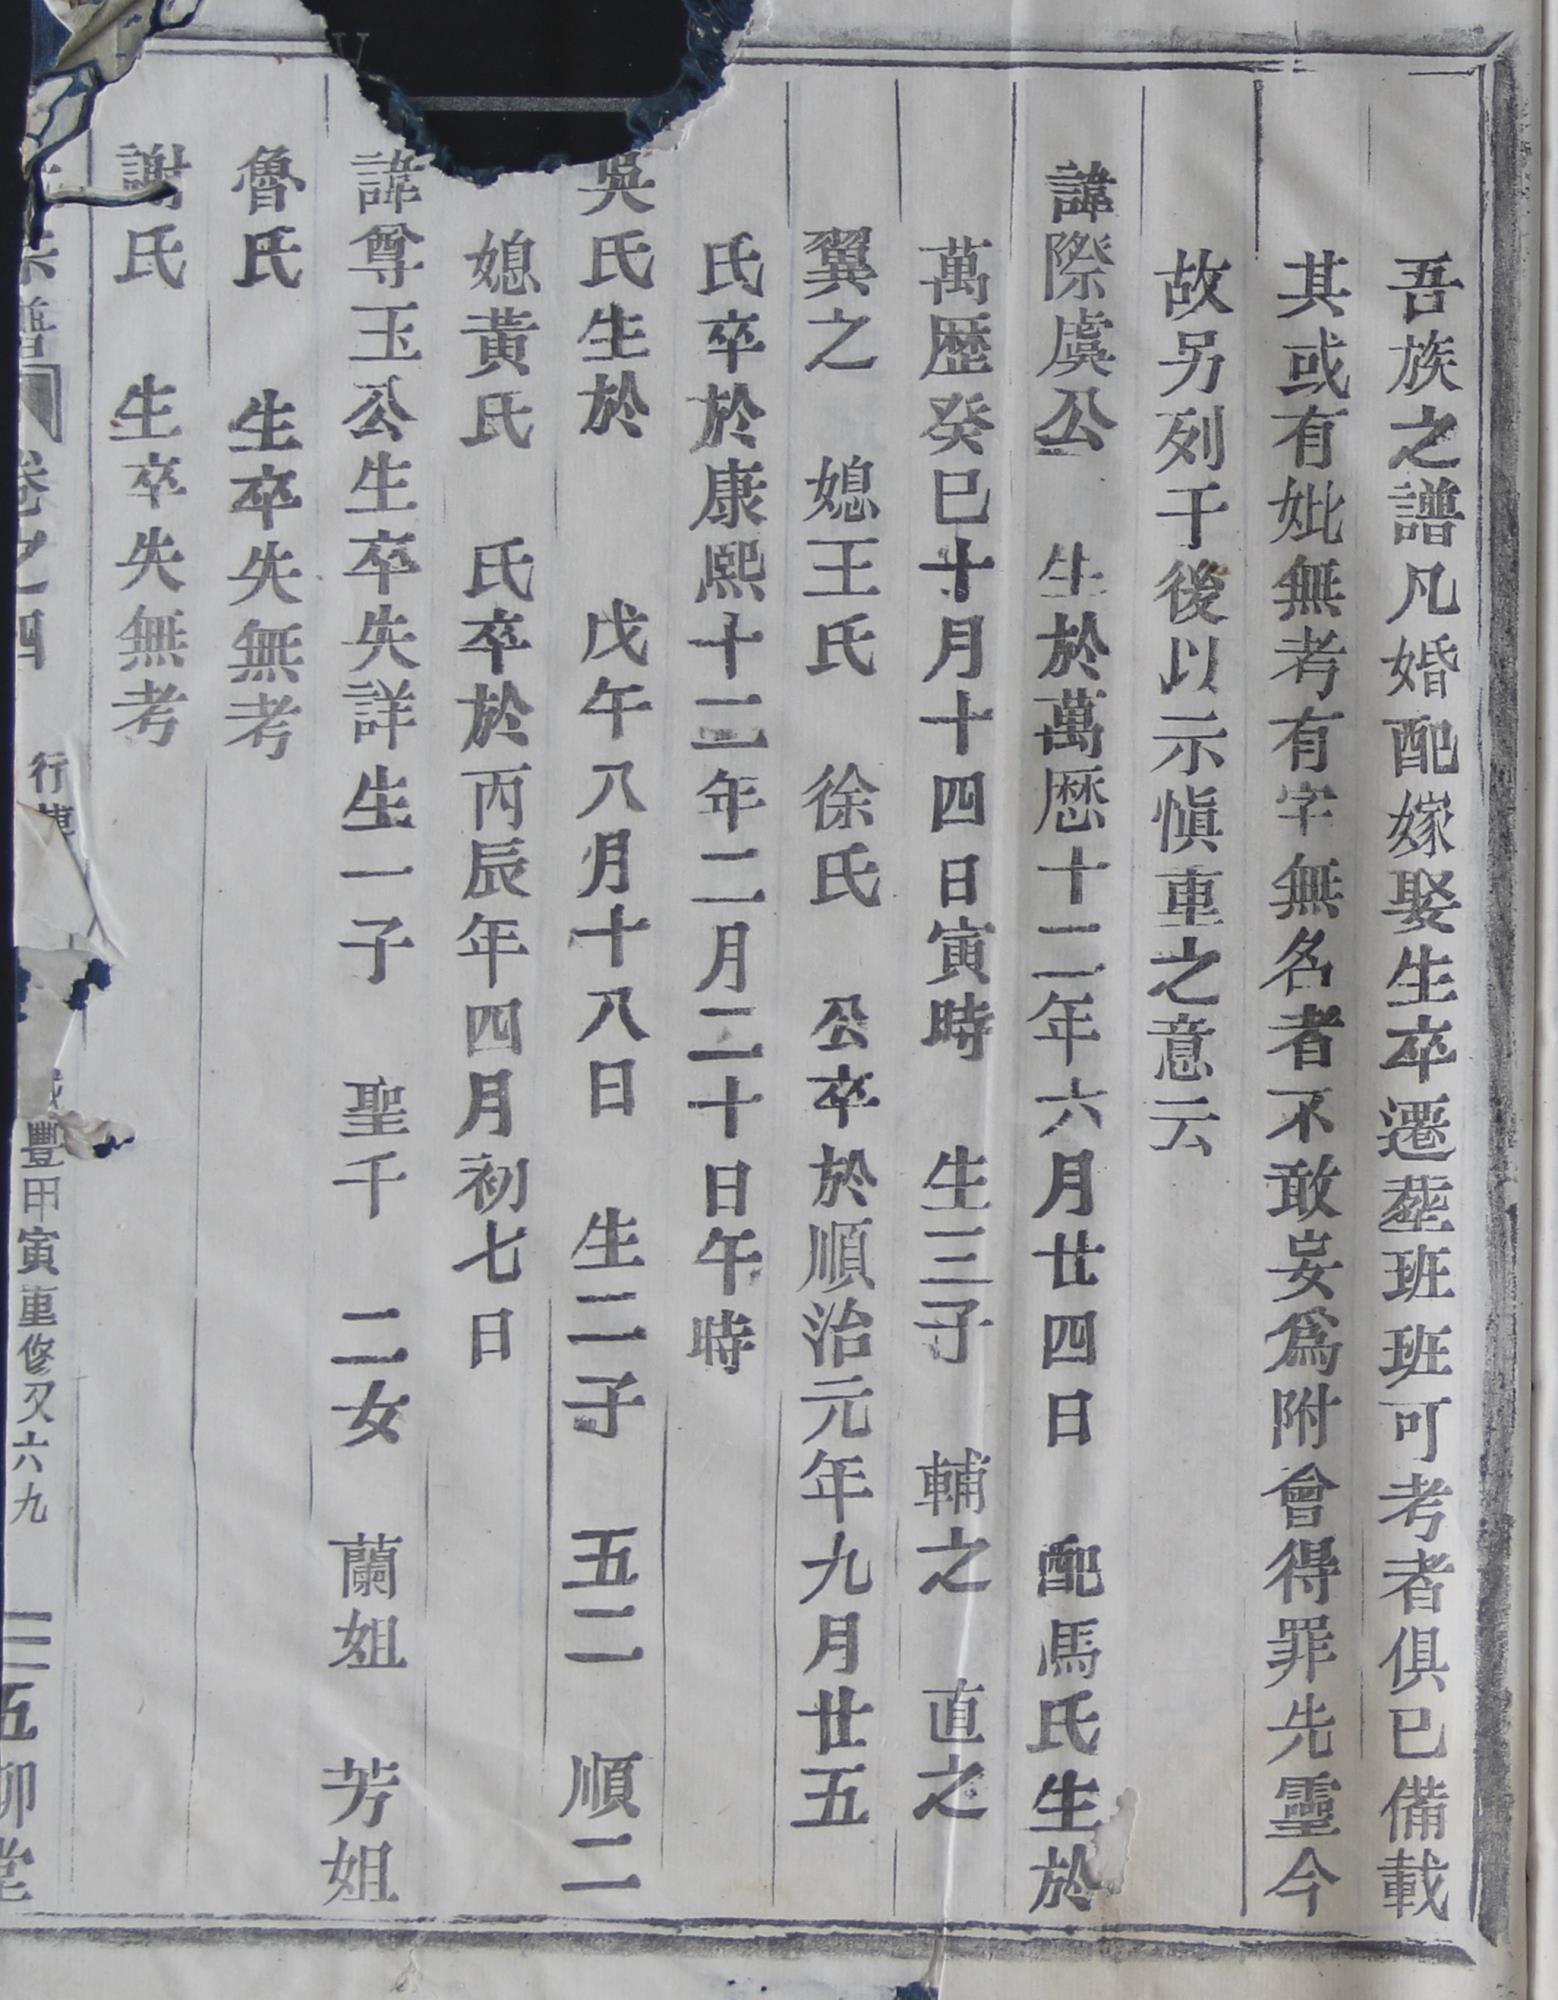 吾族之譜凡婚配嫁娶生卒遷塟班班可考者俱已備載
其或有妣無考有字無名者不敢妄爲附會得罪先靈今
故另列于後以示愼重之意云
諱際虞公　生於萬歷十二年六月廿四日　配馬氏生於
萬歷癸巳十月十四日寅時　生三子　輔之　直之
翼之　媳王氏　徐氏　公卒於順治元年九月廿五
氏卒於康熙十二年二月二十日午時
吳氏生於　戊午八月十八日　生二子　五二　順二
媳黃氏　氏卒於丙辰年四月初七日
諱尊玉公生卒失詳生一子　聖千　二女　蘭姐　芳姐
魯氏　生卒失無考
謝氏　生卒失無考
宗譜　卷之四　行　豐甲寅重修又六九　三五柳堂